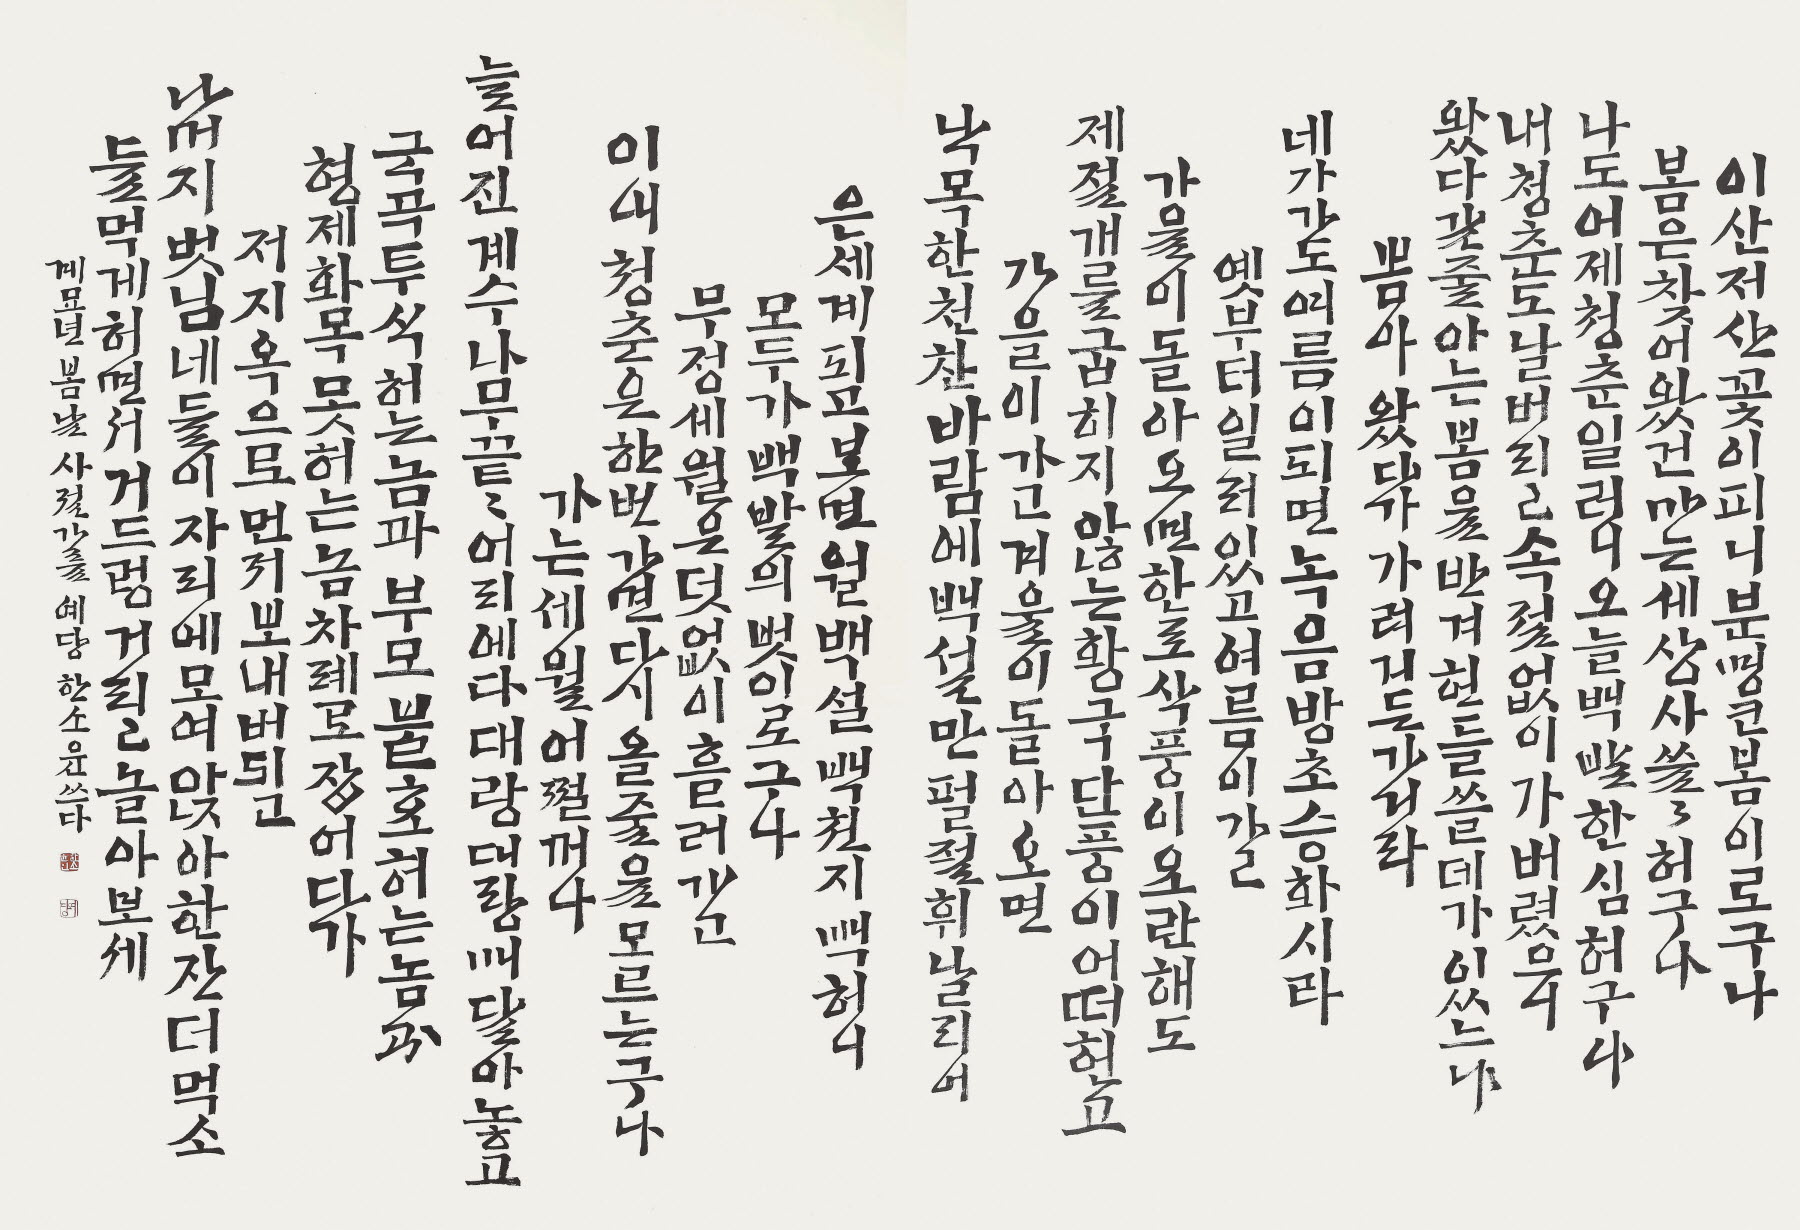 이산저산꽃이피니분명코봄이로구나
봄은찾어왔건마는세상사쓸〻허구나
나도어제청춘일러니오늘백발한심허구나
내청춘도날버리고속절없이가버렸으니
왔다갈줄아는봄을반겨헌들쓸데가있느냐
봄아왔다가가려거든가거라
네가가도여름이되면녹음방초승화시라
옛부터일러있고여름이가고
가을이돌아오면한로삭풍이요란해도
제절개를굽히지않는황국단풍이어떠헌고
가을이가고겨울이돌아오면
낙목한천찬바람에백설만펄펄휘날리어
은세계되고보면월백설백천지백허니
모두가백발의벗이로구나
무정세월은덧없이흘러가고
이내청춘은한번가면다시올줄을모르는구나
가는세월어쩔꺼나
늘어진계수나무끝〻어리에다대랑대랑매달아놓고
국곡투식허는놈과부모불효허는놈과
형제화목못허는놈차례로잡어다가
저지옥으로먼저보내버리고
나머지벗님네들이자리에모여앉아한잔더먹소
들먹게허면서거드렁거리고놀아보세
계묘년봄날사절가를 예당한소윤쓰다